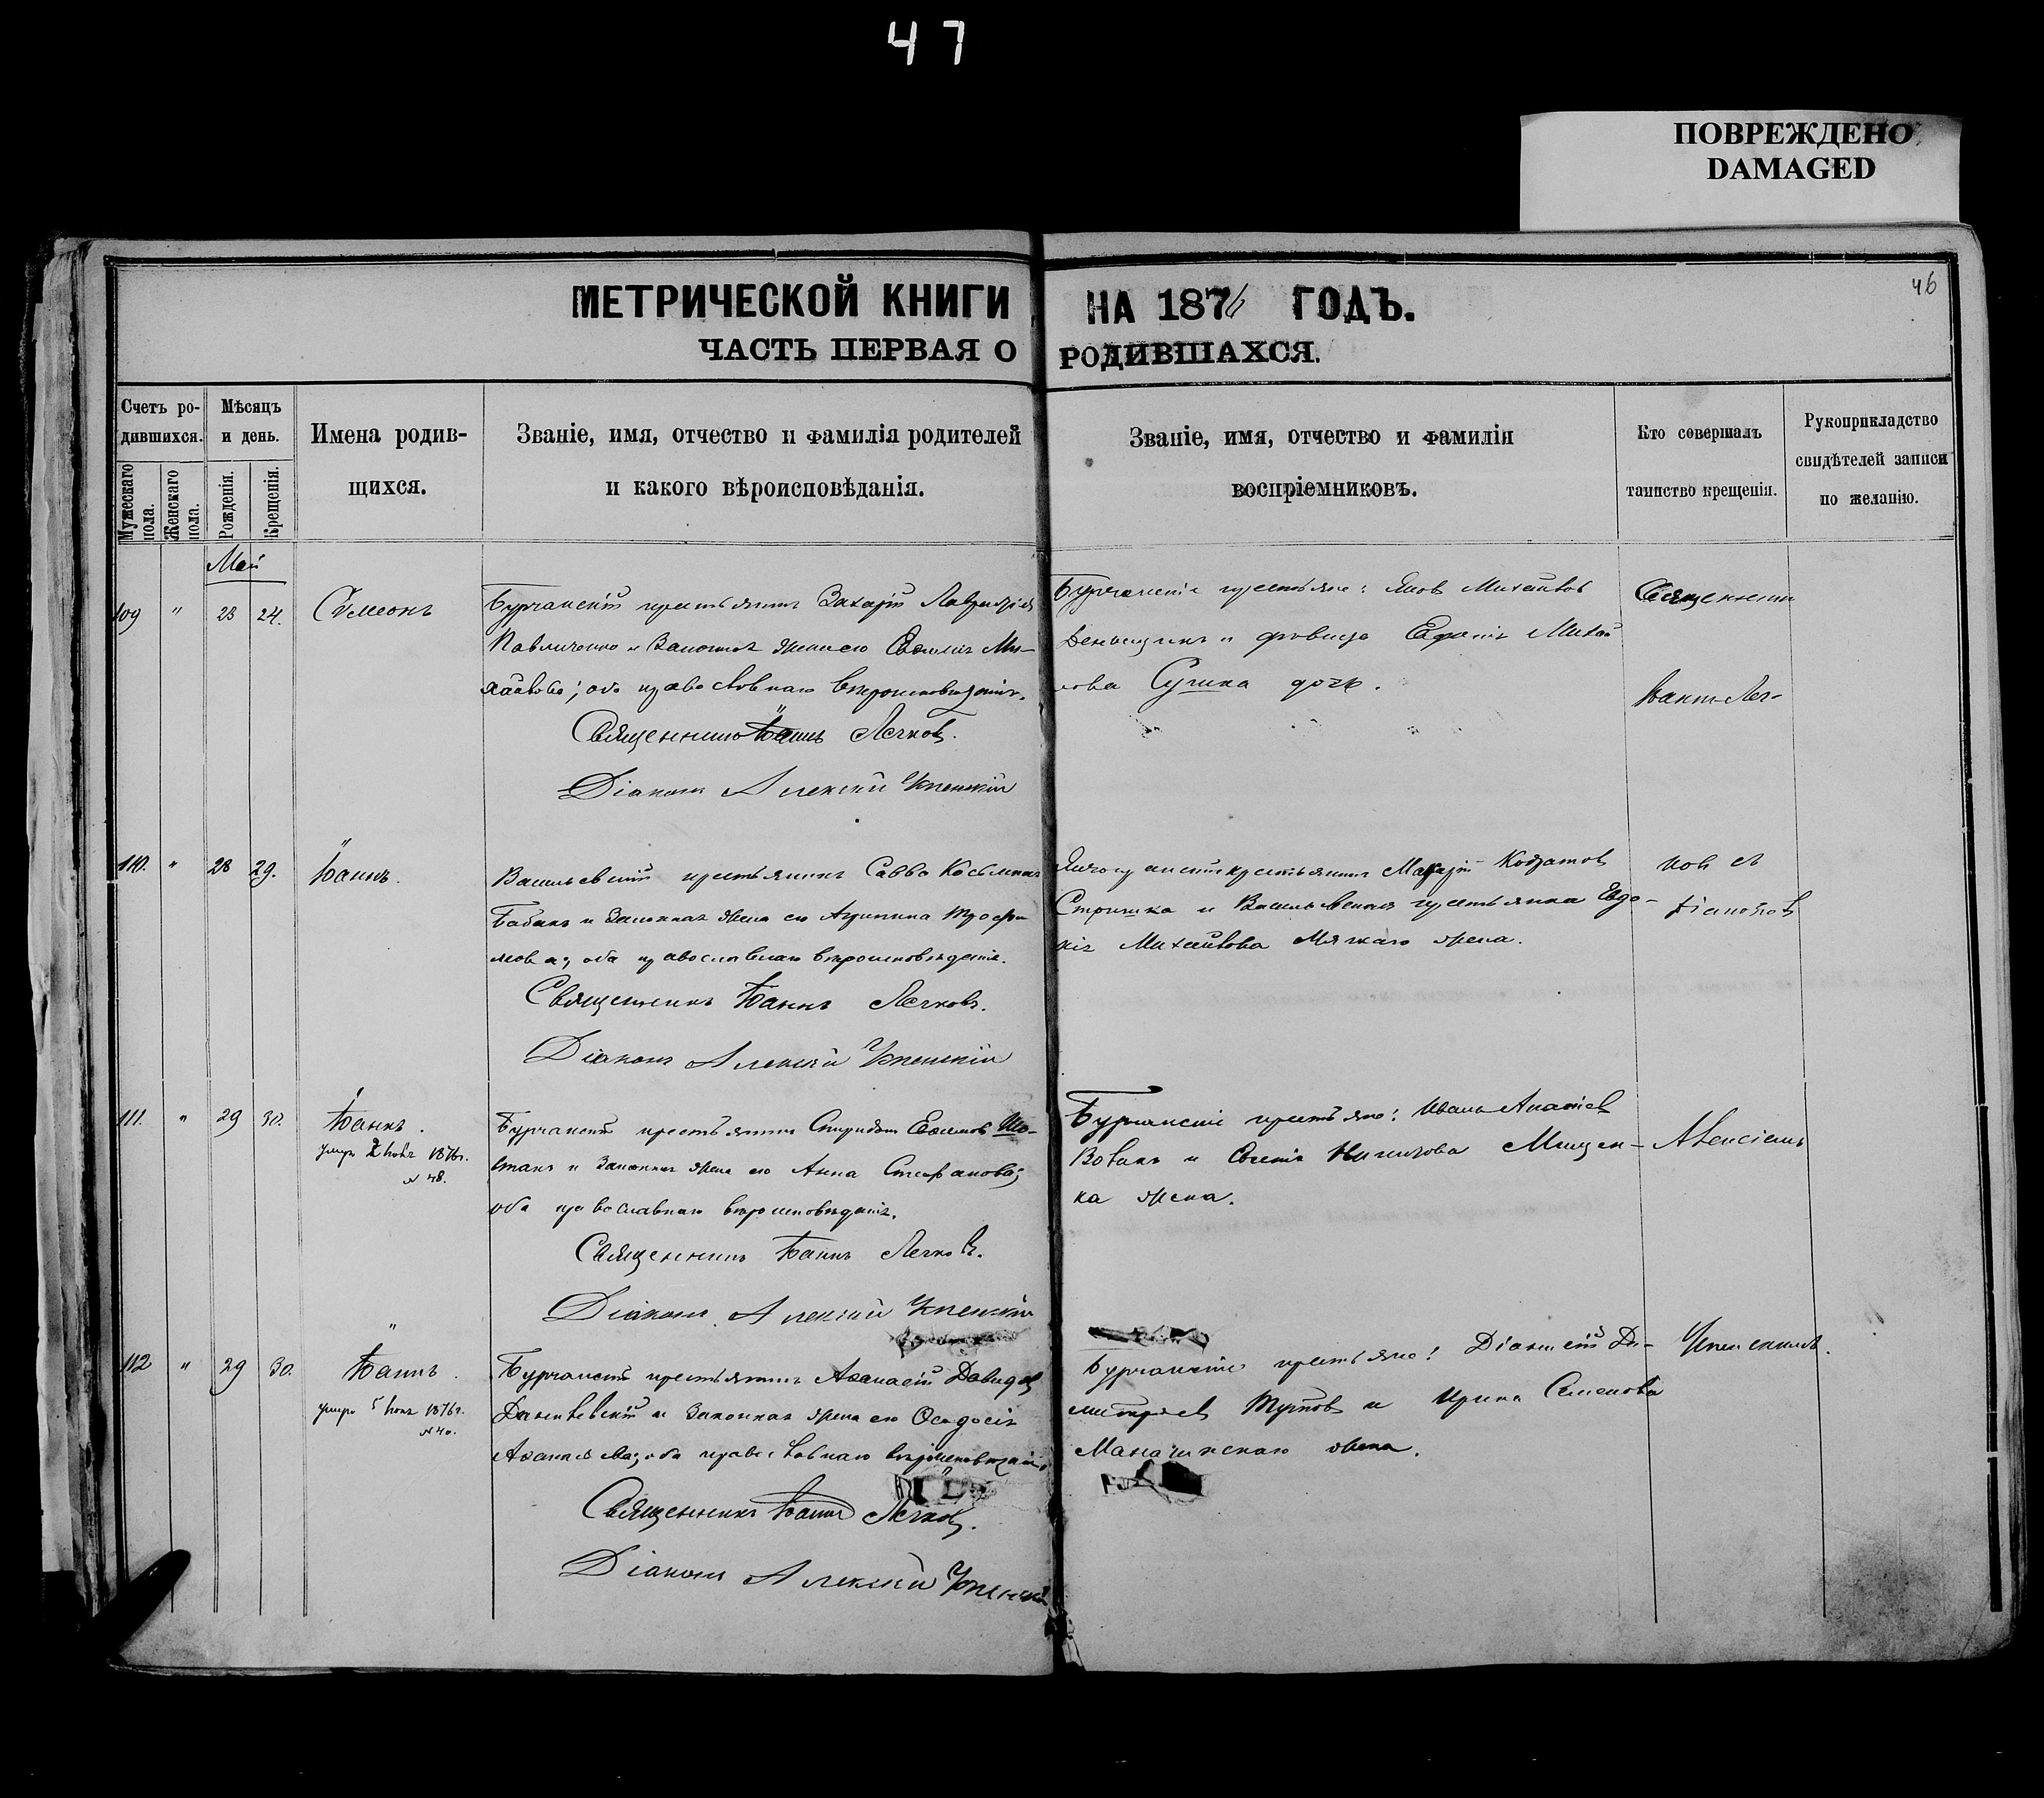 47
ПОВРЕЖДЕНО
DAMAGED
46
МЕТРИЧЕСКОЙ КНИГИ НА 1876 ГОДЪ.
ЧАСТЬ ПЕРВАЯ О РОДИВШАХСЯ.
Счетъ ро-
дившихся.
Мужескаго пола.
Женскаго пола.
Мѣсяцъ
и день.
Рожденія.
Крещенія.
Имена родив-
щихся.
Званіе, имя, отчество и фамилія родителей
и какого вѣроисповѣданія.
Званіе, имя, отчество и фамилія
воспріемниковъ.
Кто совершалъ
таинство крещенія.
Рукоприкладство
свидѣтелей записи
по желанію.
Май
109 " 23 24. Сѵмеонъ
Бурчанскій крестьянинъ Захарій
Павличенко и законная жена его Евѳимія Ми-
хайлова; оба православнаго вѣроисповѣданія.
Священникъ Іоаннъ Лечковъ.
Діаконъ Алексій Успенскій
Бурчанскіе крестьяне: Яковъ Михайловъ
Деньщикъ и дѣвица
лова дочь.
Священникъ
Іоаннъ Леч-
110. " 28 29. Іоаннъ.
Васильевскій крестьянинъ Савва Косьминъ
Бабакъ и законная жена его Агрипина Трофи-
мова; оба православнаго вѣроисповѣданія.
Священникъ Іоаннъ Лечковъ.
Діаконъ Алексій Успенскій
крестьянинъ Макарій
и Васильевская крестьянка Евдо-
кія Михайлова Мягкаго жена.
ковъ съ
Діакономъ
111. " 29 30. Іоаннъ.
умеръ 1876г.
№ 48.
Бурчанскій крестьянинъ Спиридонъ Евѳимовъ Шо-
станъ и законная жена его Анна Стефанова;
оба православнаго вѣроисповѣданія.
Священникъ Іоаннъ Лечковъ.
Діаконъ Алексій Успенскій
Бурчанскіе крестьяне: Иванъ
Вовакъ и Мищен-
ка жена.
Алексіемъ
112 " 29 30. Іоаннъ.
умеръ 5 1876г.
№ 40.
Бурчанскій крестьянинъ Аѳанасій Давидовъ
и законная жена его Ѳеодосія
оба православнаго вѣроисповѣданія.
Священникъ Іоаннъ Лечковъ.
Діаконъ Алексій Успенскій
Бурчанскіе крестьяне: Діонисій Ди-
митріевъ и Ирина Семенова
жена.
Успенскимъ.